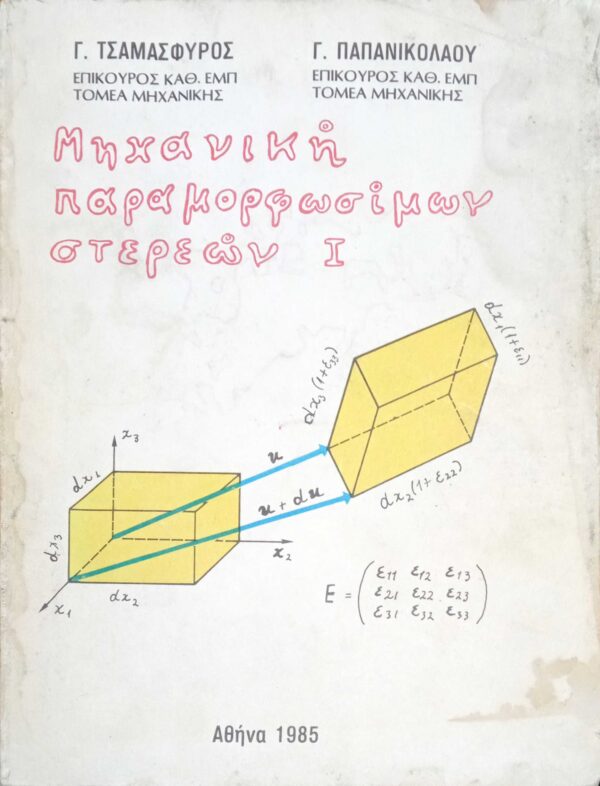 Γ. ΤΣΑΜΑΣΦΥΡΟΣ
ΕΠΙΚΟΥΡΟΣ ΚΑΘ. ΕΜΠ
ΤΟΜΕΑ ΜΗΧΑΝΙΚΗΣ
Γ. ΠΑΠΑΝΙΚΟΛΑΟΥ
ΕΠΙΚΟΥΡΟΣ ΚΑΘ. ΕΜΠ
ΤΟΜΕΑ ΜΗΧΑΝΙΚΗΣ
Μηχανική
παραμορφωσίμων
στερεών I
dx₃(1+ε₃₃)
dx₁(1+ε₁₁)
dx₂(1+ε₂₂)
u
u + du
x₃
dx₁
dx₃
x₂
dx₂
x₁
E = (ε₁₁ ε₁₂ ε₁₃
ε₂₁ ε₂₂ ε₂₃
ε₃₁ ε₃₂ ε₃₃)
Αθήνα 1985